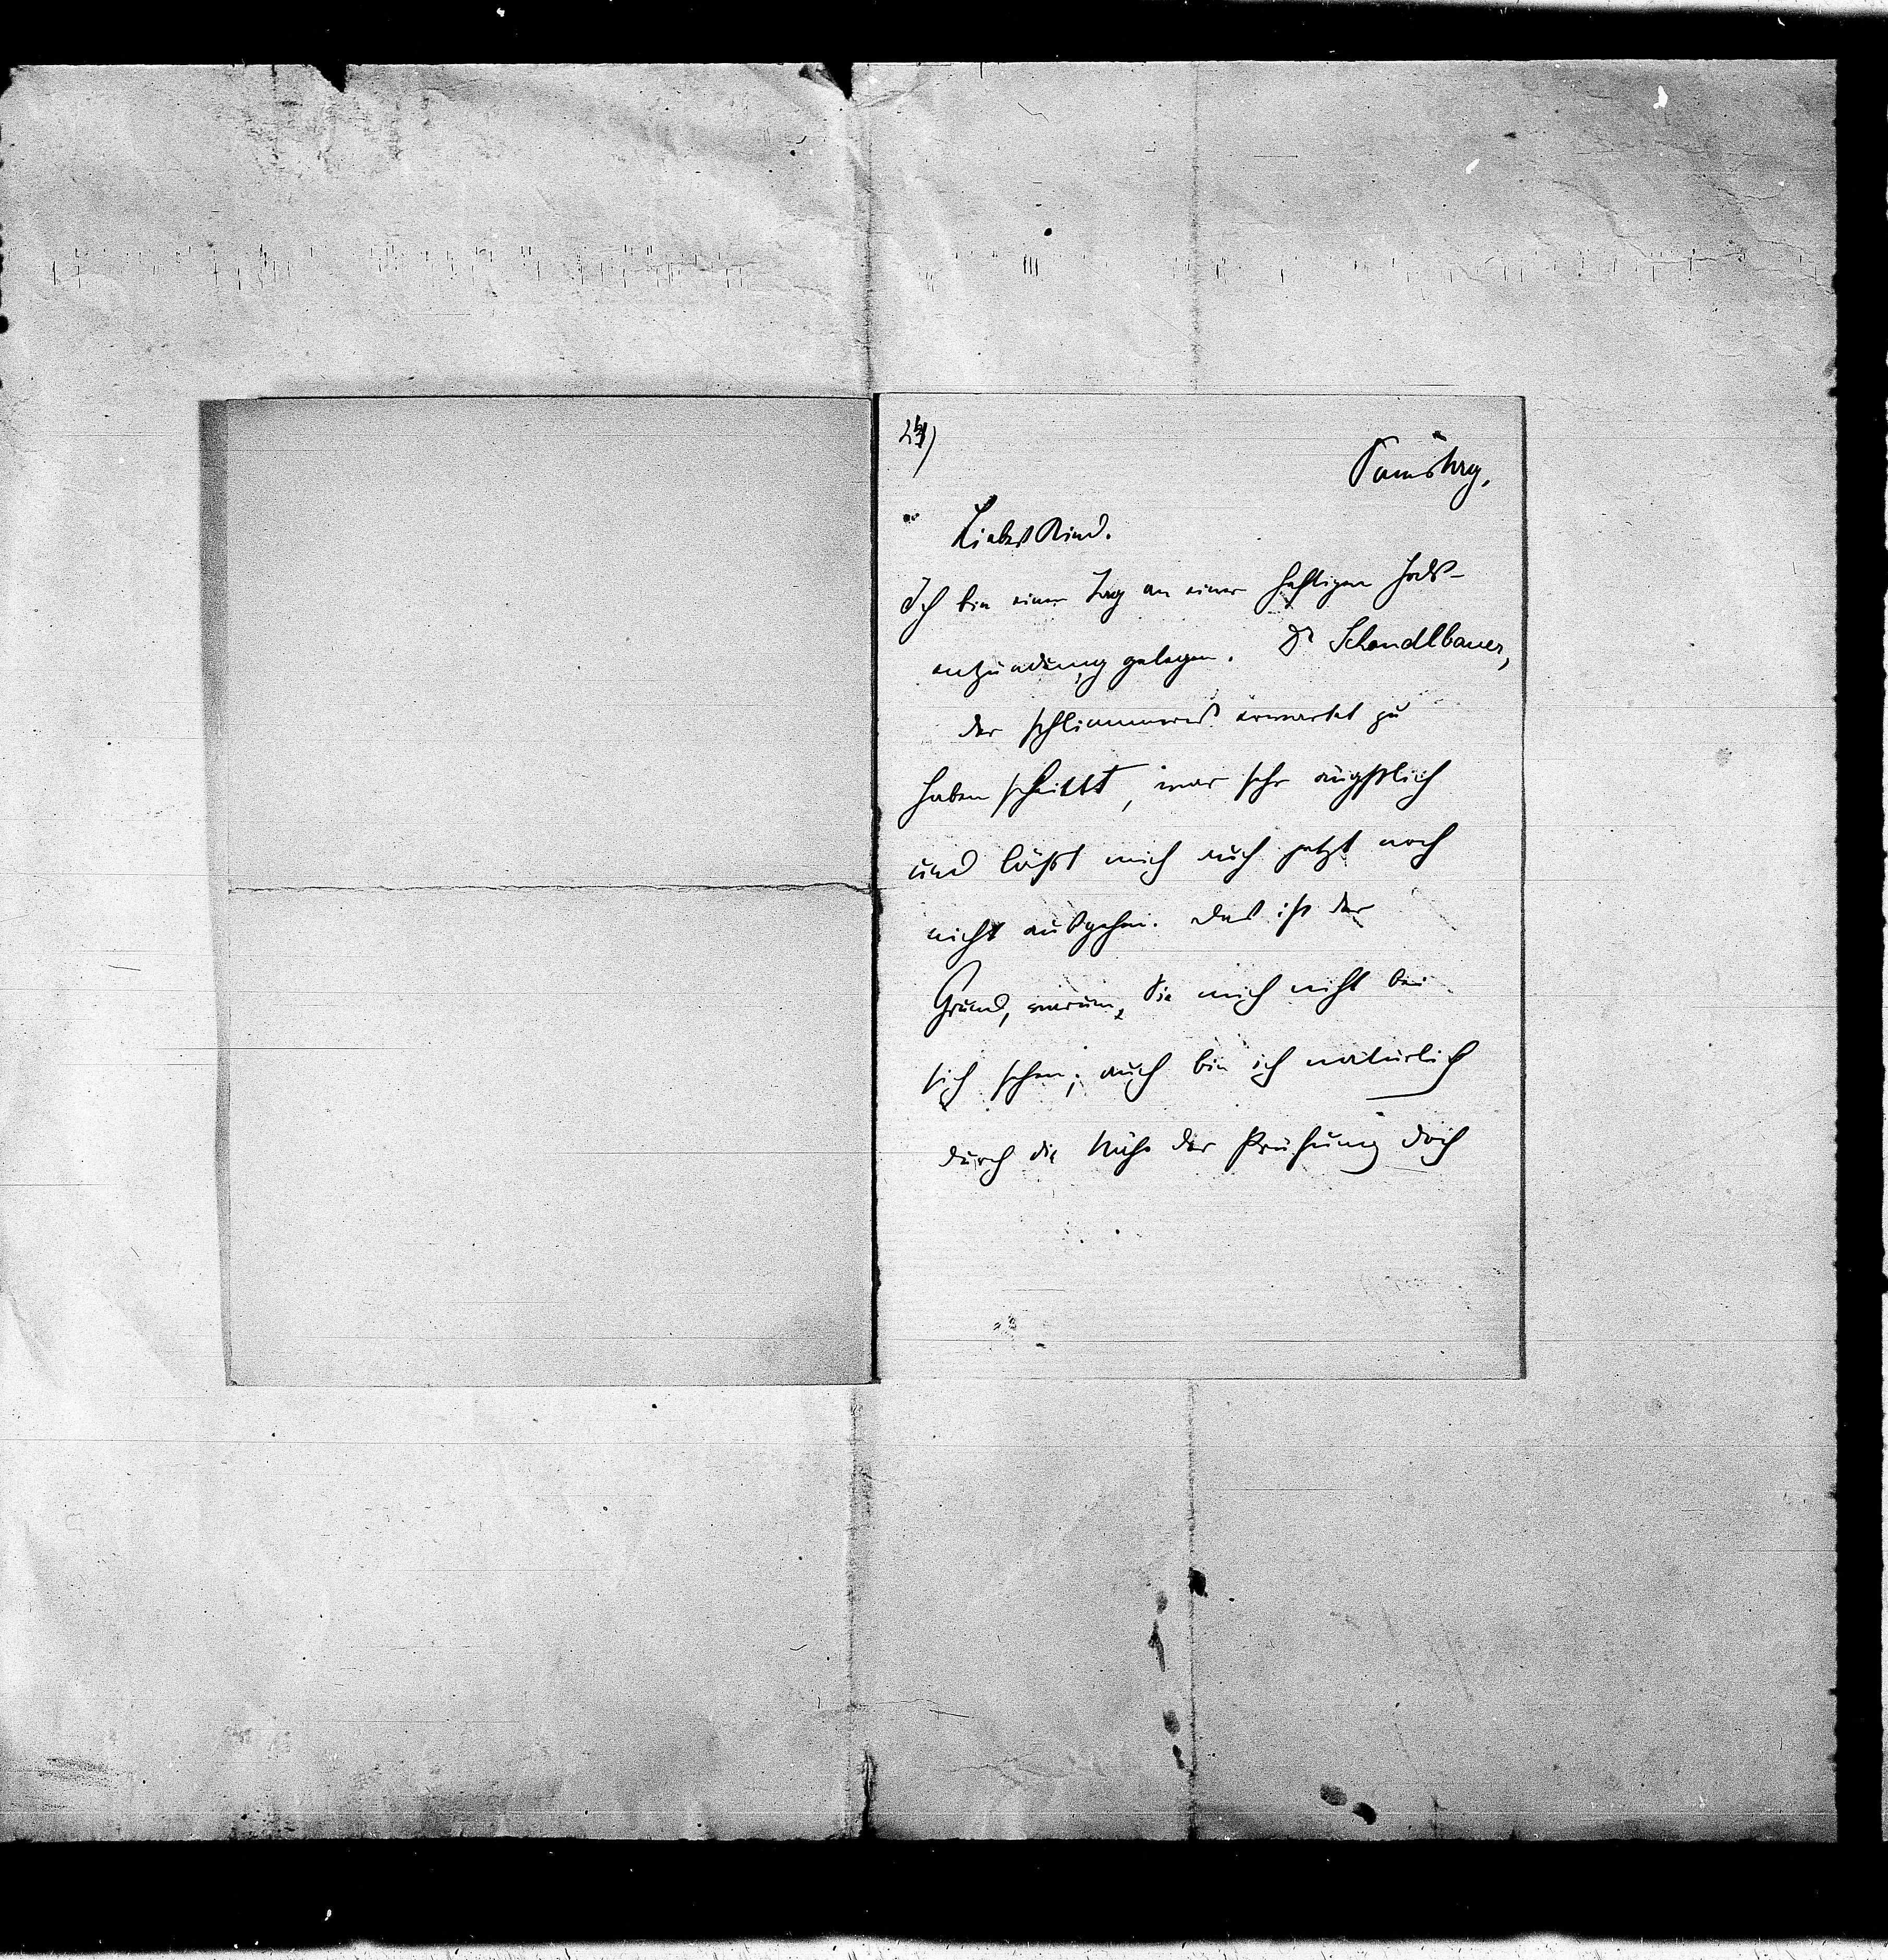 Samstag,
Liebes Kind.
Ich bin einen Tag an einer heftigen Hals-
entzündung gelegen. Dr Schandlbauer,
der schlimmeres erwartet zu
haben scheint, war sehr ängstlich
und läßt mich auch jetzt noch
nicht ausgehen. Das ist der
Grund, warum Sie mich nicht bei
sich sehen; auch bin ich natürlich
durch die Nähe der Prüfung doch